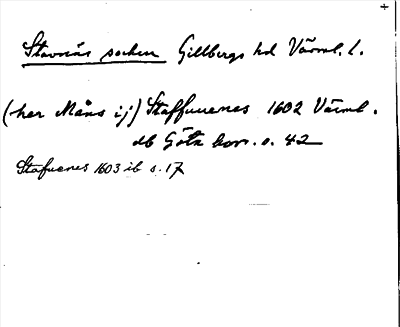 Stavnäs socken Gillbergs hd Värml. l.
(her Måns ij) Staffuenes 1602 Värml.
db Göta hovr. s. 42
Stafuenes 1603 ib s. 17